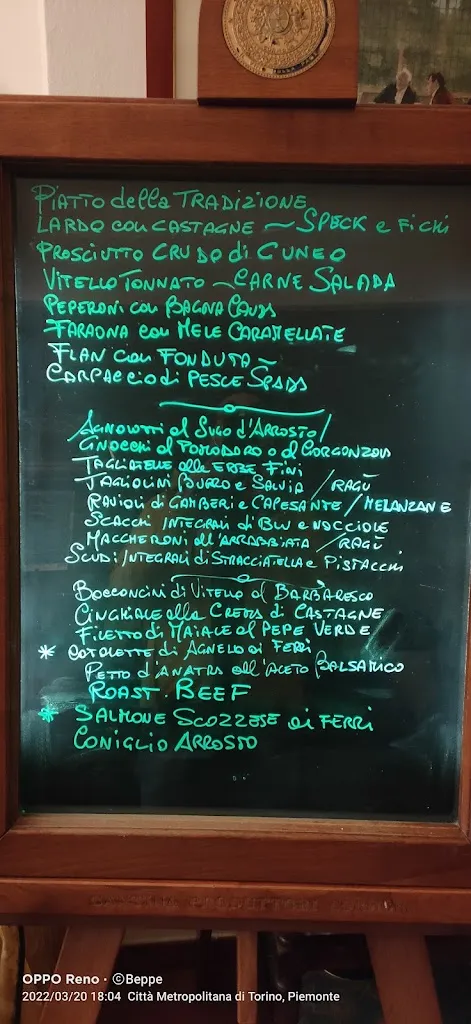 PIATTO della TRADIZIONE
LARDO con CASTAGNE ~ SPECK e FICHI
PROSCIUTTO CRUDO di CUNEO
VITELLO TONNATO ~ CARNE SALADA
PEPERONI con BAGNA CAUDA
FARAONA con MELE CARAMELLATE
FLAN con FONDUTA ~
CARPACCIO di PESCE SPADA
AGNOLOTTI al SUGO d'ARROSTO /
GNOCCHI al POMODORO o al GORGONZOLA
TAGLIATELLE alle ERBE FINI
TAGLIOLINI BURRO e SALVIA / RAGÙ
RAVIOLI di GAMBERI e CAPESANTE / MELANZANE
SCACCHI INTEGRALI di BLU e NOCCIOLE
MACCHERONI all'ARRABBIATA / RAGÙ
SCUDI INTEGRALI di STRACCIATELLA e PISTACCHI
BOCCONCINI di VITELLO al BARBARESCO
CINGHIALE alla CREMA di CASTAGNE
FILETTO di MAIALE al PEPE VERDE
* COTOLETTE di AGNELLO ai FERRI
PETTO d'ANATRA all'ACETO BALSAMICO
ROAST-BEEF
* SALMONE SCOZZESE ai FERRI
CONIGLIO ARROSTO
OPPO Reno · ©Beppe
2022/03/20 18:04 Città Metropolitana di Torino, Piemonte